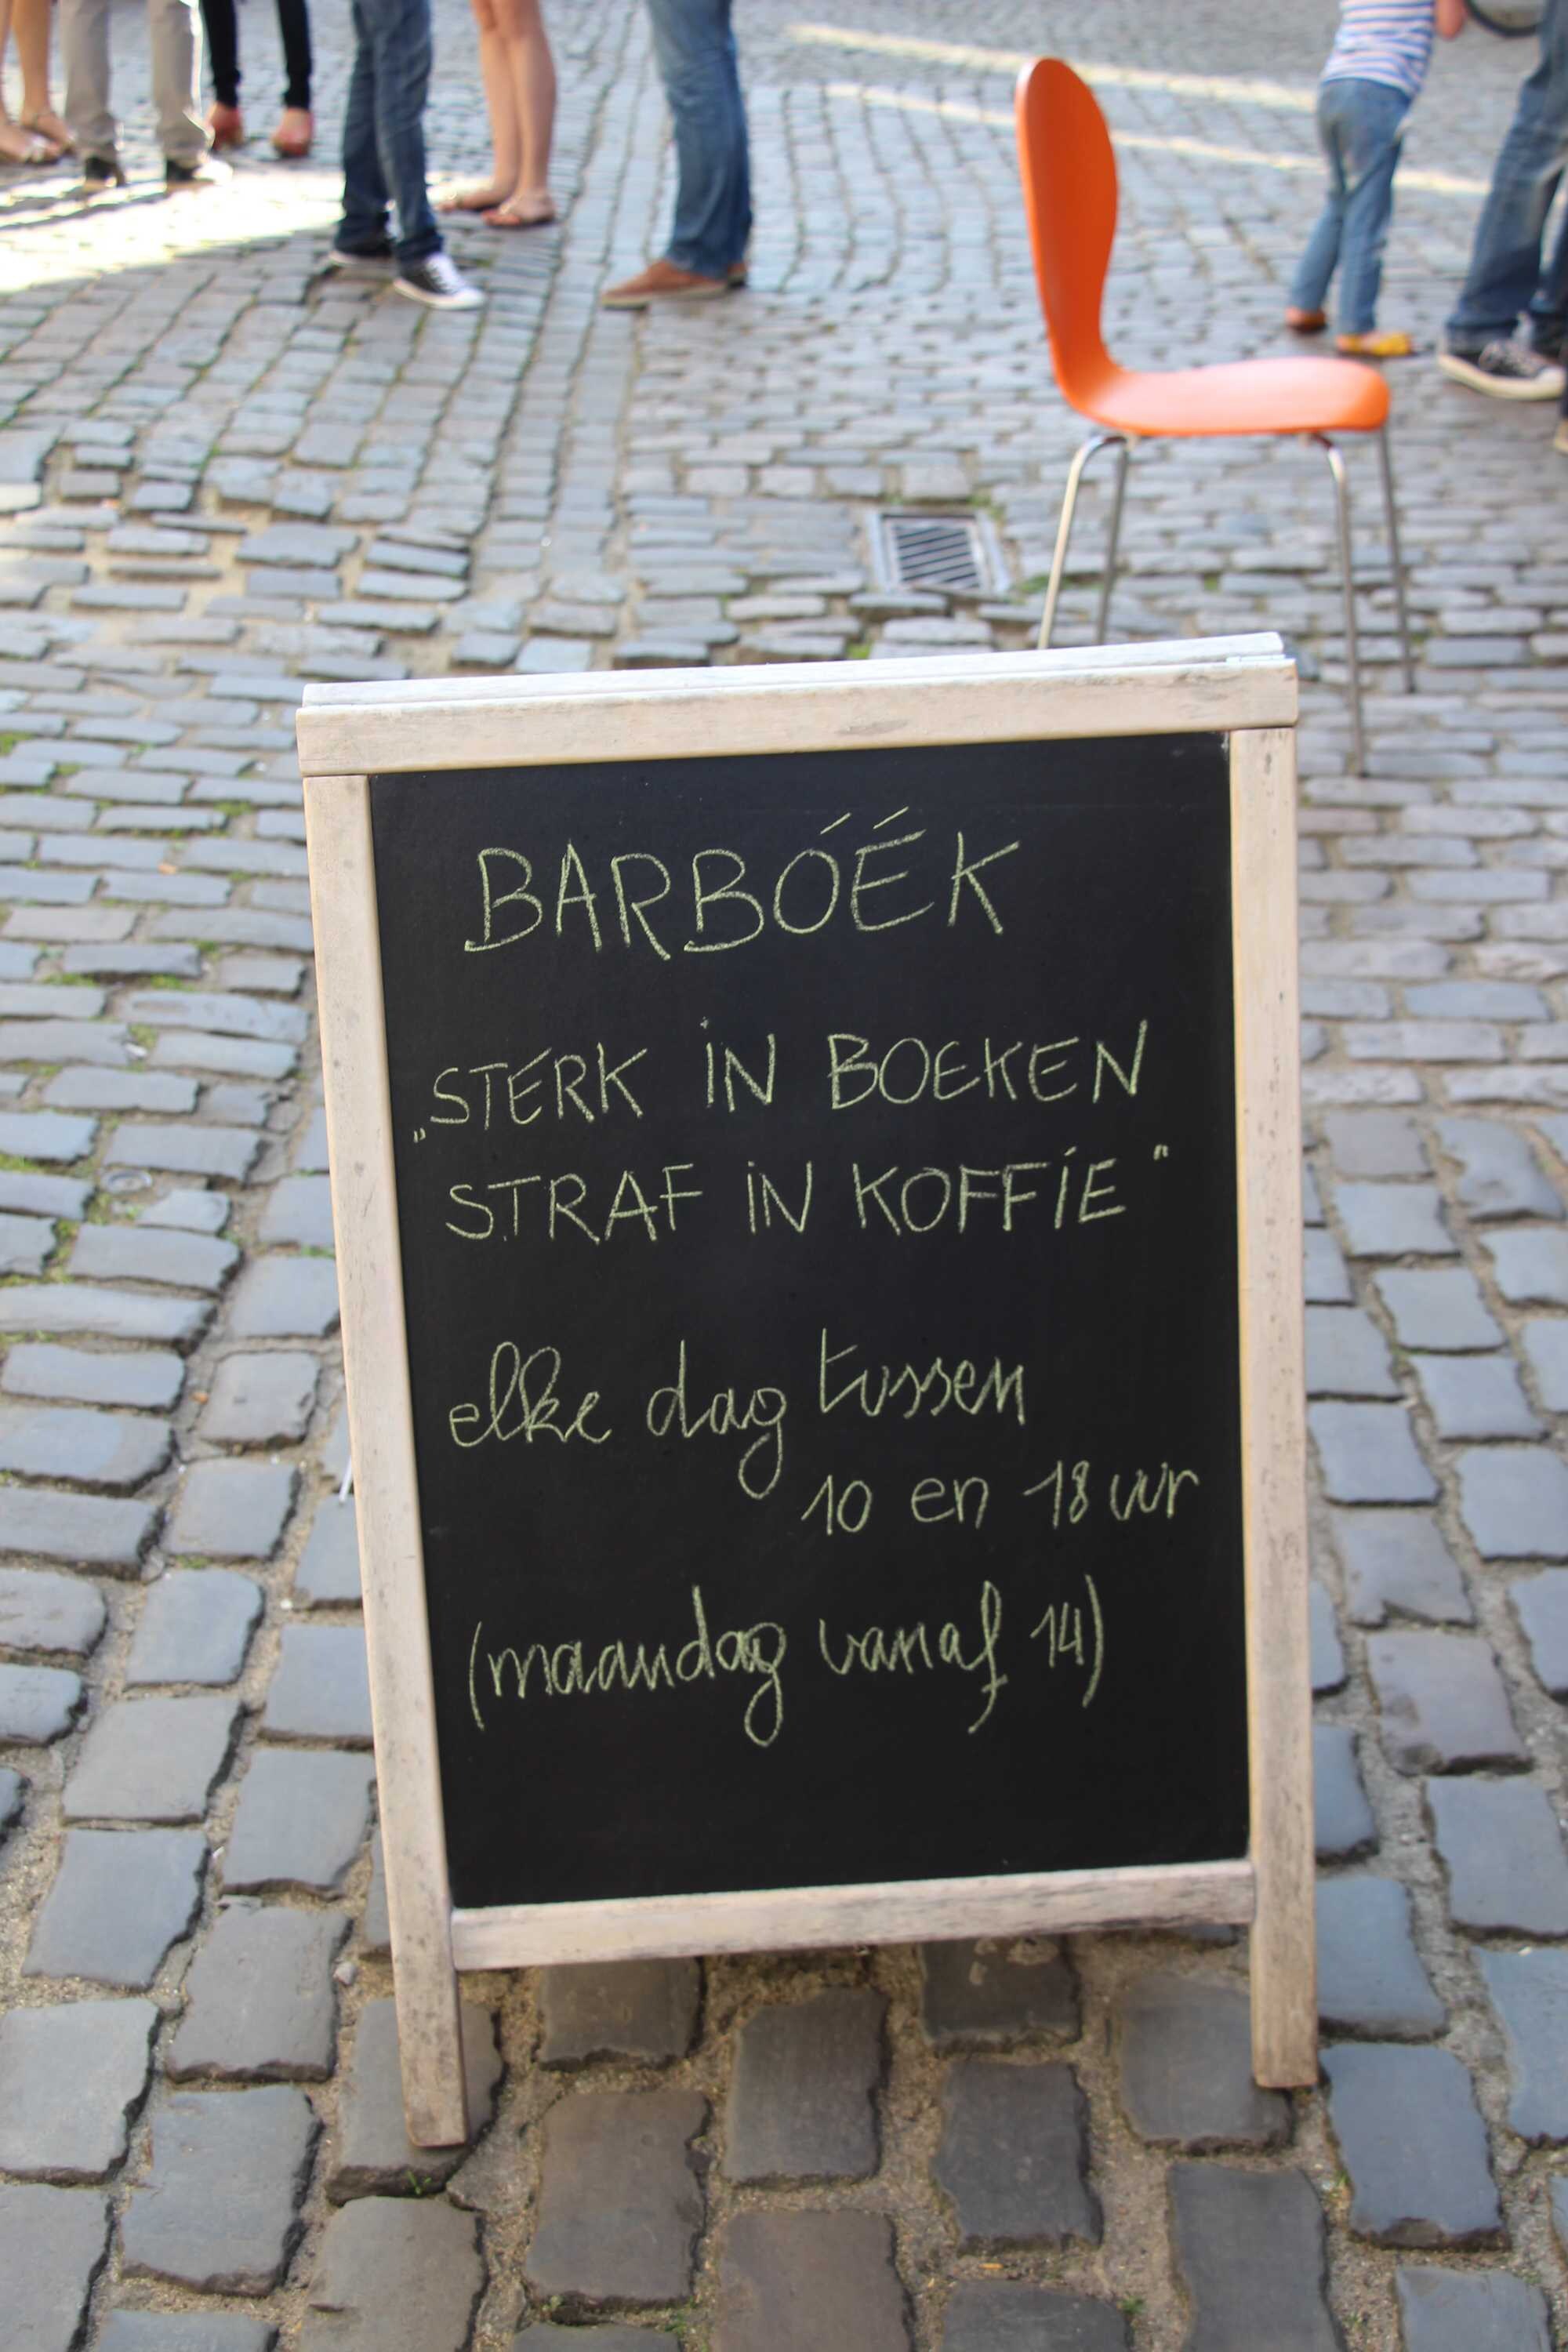 BARBÓÉK
„STERK IN BOEKEN
STRAF IN KOFFIE"
elke dag tussen
10 en 18 uur
(maandag vanaf 14)